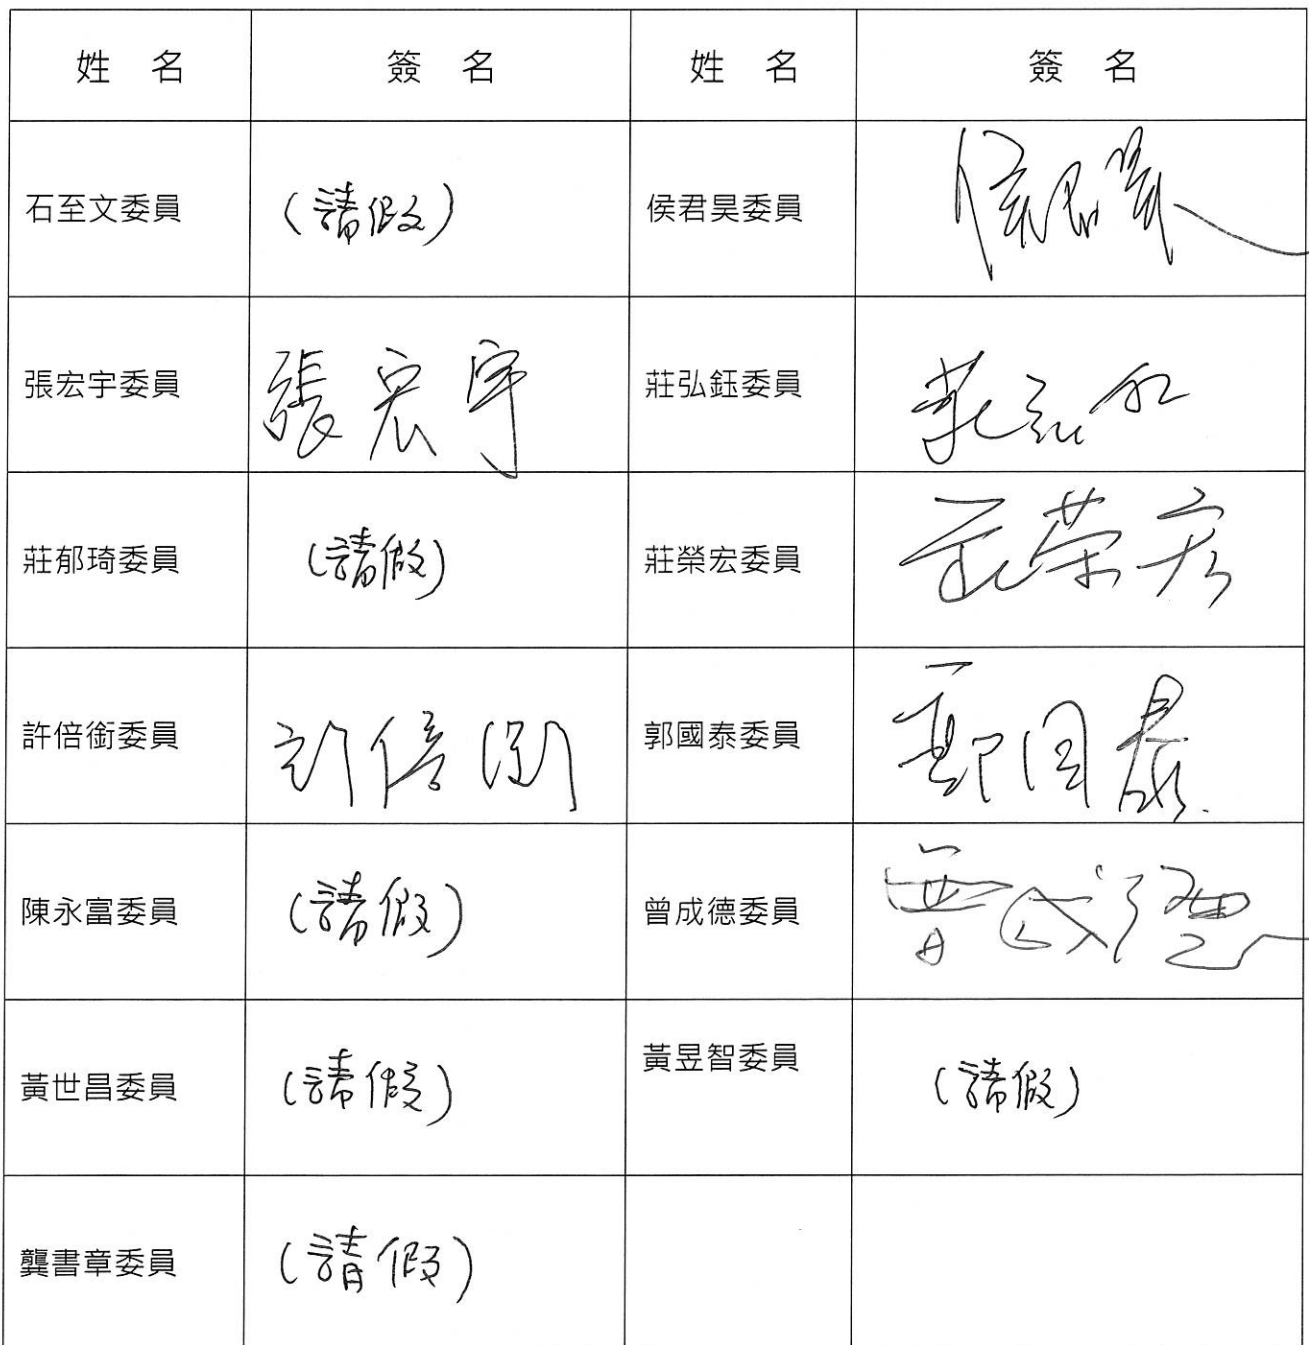 姓 名 簽 名 姓 名 簽 名
石至文委員 (請假) 侯君昊委員 侯君昊
張宏宇委員 張宏宇 莊弘鈺委員 莊弘鈺
莊郁琦委員 (請假) 莊榮宏委員 莊荣宏
許倍銜委員 許倍銜 郭國泰委員 郭国泰
陳永富委員 (請假) 曾成德委員 曾成德
黃世昌委員 (請假) 黃昱智委員 (請假)
龔書章委員 (請假)